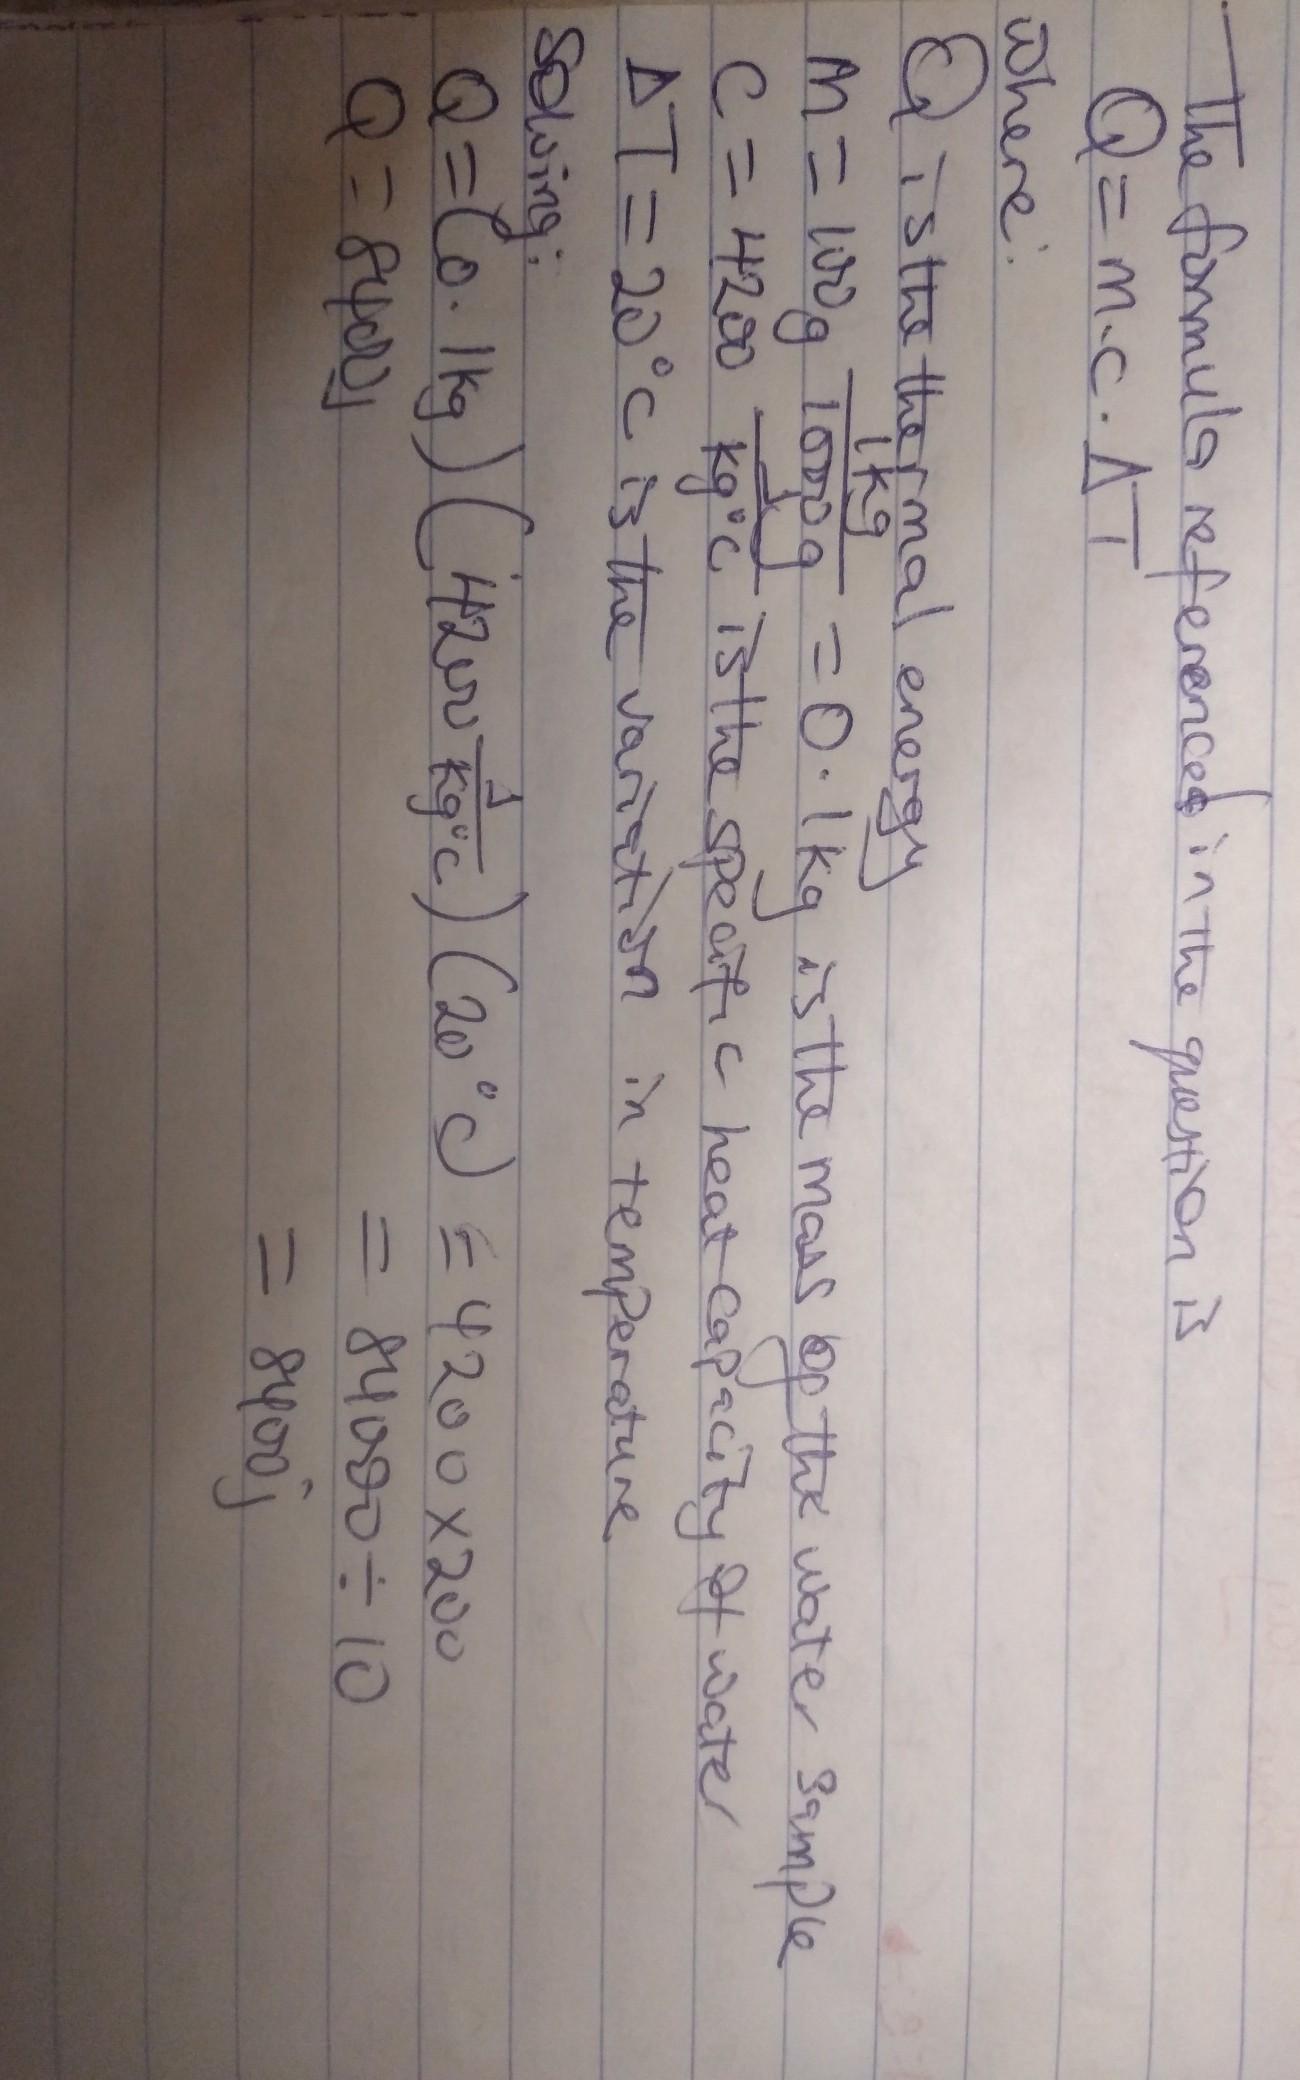 The formula referenced in the question is
Q = m.c.ΔT
where:
Q is the thermal energy
M = 100g 1kg/1000g = 0.1kg is the mass of the water sample
C = 4200 J/kg°C is the specific heat capacity of water
ΔT = 20°C is the variation in temperature
Solving:
Q = (0.1kg) (4200 J/kg°C) (20°C) = 4200 x 200
Q = 8400J = 84000 ÷ 10
= 8400j